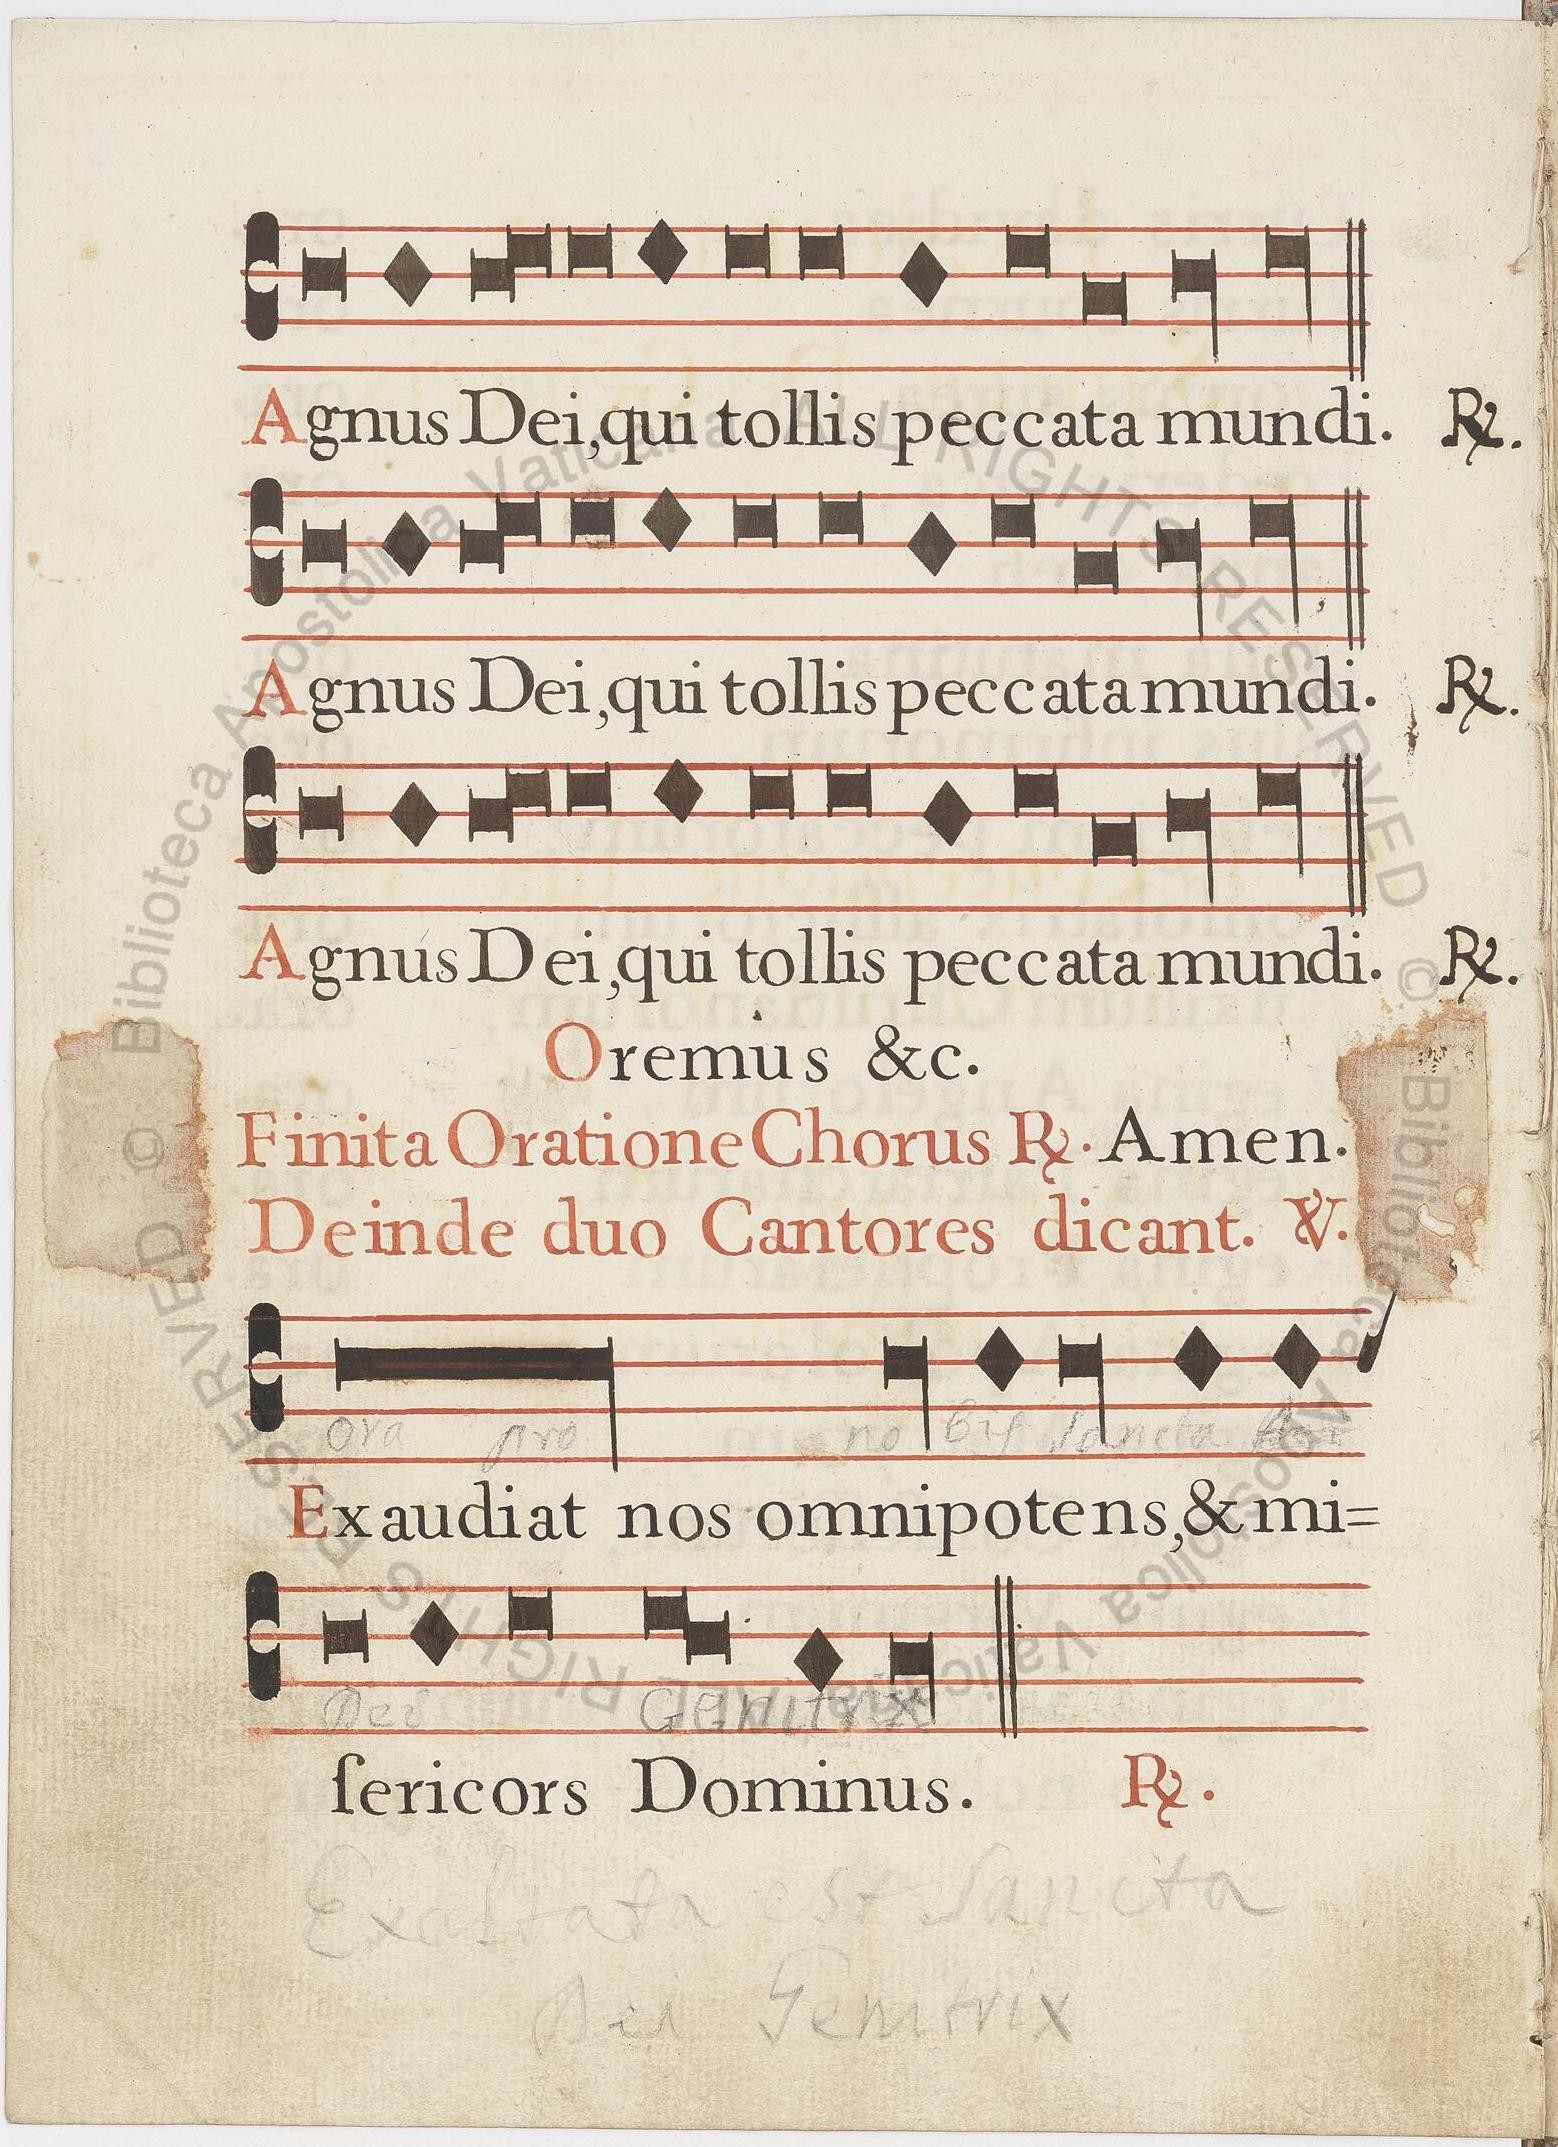 Agnus Dei, qui tollis peccata mundi. ℟.
Agnus Dei, qui tollis peccata mundi. ℟.
Agnus Dei, qui tollis peccata mundi. ℟.
Oremus &c.
Finita Oratione Chorus ℟. Amen.
Deinde duo Cantores dicant. ℣.
Ora pro no bis Sancta
Exaudiat nos omnipotens, & mi=
Dei Genitrix
ſericors Dominus. ℟.
Exaltata est Sancta
Dei Genitrix
© Biblioteca Apostolica Vaticana ALL RIGHTS RESERVED © Biblioteca Apostolica Vaticana ALL RIGHTS RESERVED